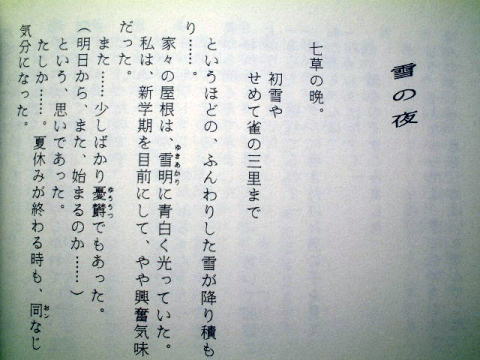 雪の夜
七草の晩。
初雪や
せめて雀の三里まで
というほどの、ふんわりした雪が降り積も
り……。
家々の屋根は、雪明に青白く光っていた。
ゆきあかり
私は、新学期を目前にして、やや興奮気味
だった。
また……少しばかり憂欝でもあった。
ゆううつ
(明日から、また、始まるのか……)
という、思いであった。
たしか……。夏休みが終わる時も、同なじ
オン
気分になった。